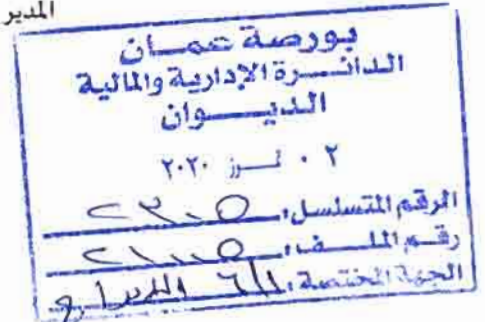 المدير
بورصة عمان
الدائرة الإدارية والمالية
الديوان
٠٢ تموز ٢٠٢٠
الرقم المتسلسل: ٢٣٠٥
رقم الملف:
الجهة المختصة: